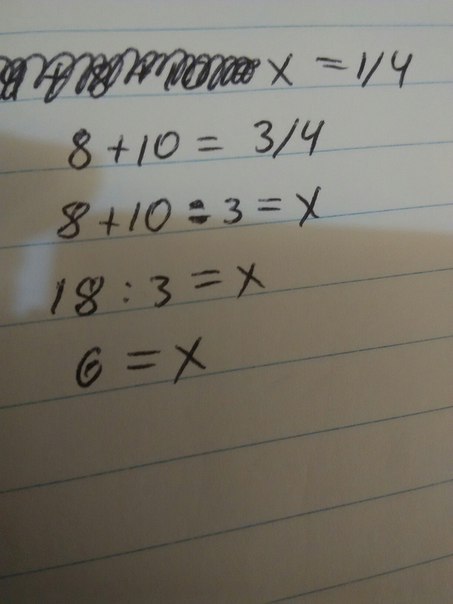 x = 1/4
8 + 10 = 3/4
8 + 10 : 3 = x
18 : 3 = x
6 = x